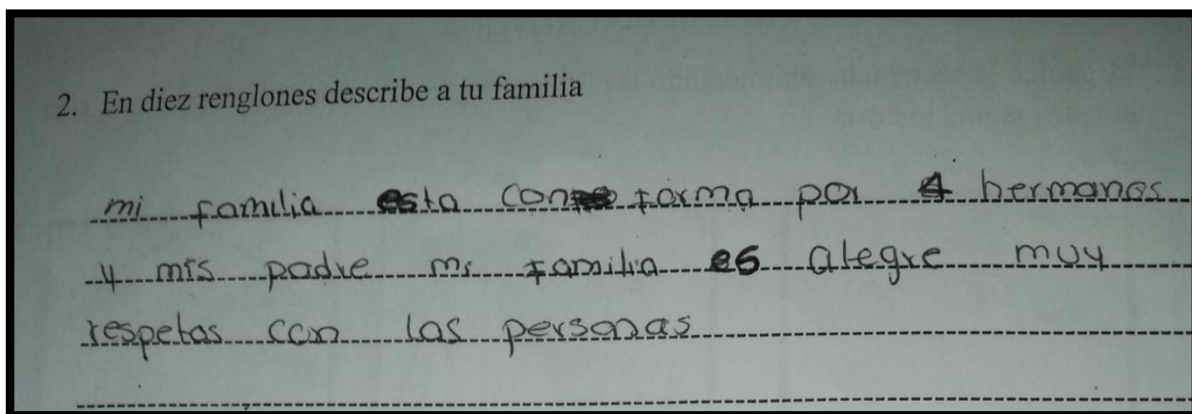 2. En diez renglones describe a tu familia
mi familia esta con forma por 4 hermanos
y mis padre mi familia es alegre muy
respetas con las personas